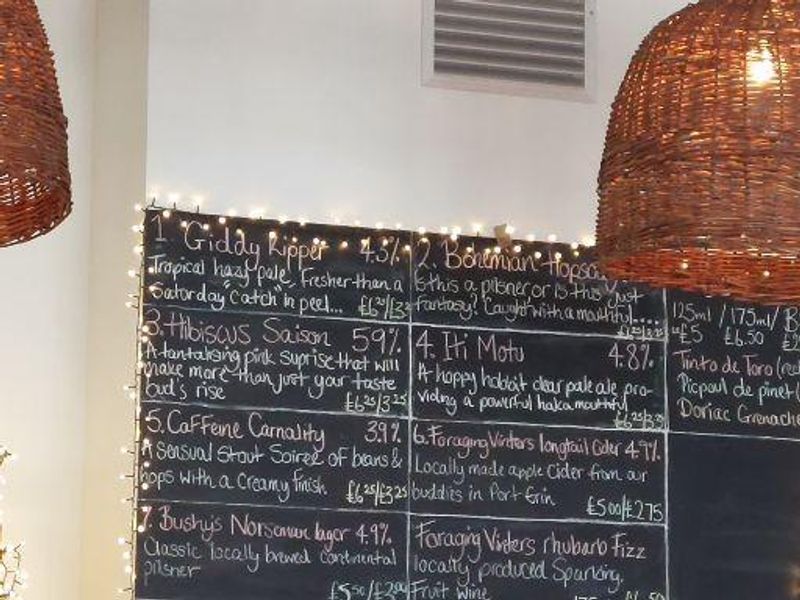 1 Giddy Kipper 4.3%
Tropical hazy pale. Fresher than a
Saturday "catch" in peel...
£6.25/3.25
2. Bohemian Hopsody
Is this a pilsner or is this just
fantasy? Caught with a mouthful....
3. Hibiscus Saison 5.9%
A tantalising pink suprise that will
make more than just your taste
bud's rise
£6.25/3.25
4. Iti Motu 4.8%
A hoppy hobbit clear pale ale pro-
viding a powerful haka mouthful
£6.25/3.25
5. Caffeine Carnality 3.9%
A sensual Stout Soiree of beans &
hops with a Creamy finish
£6.25/£3.25
6. Foraging Vinters longtail Cider 4.9%
Locally made apple Cider from our
buddies in Port Erin
£5.00/£2.75
7. Bushy's Norseman lager 4.9%
Classic locally brewed Continental
pilsner
£5.50/£2.90
Foraging Vinters rhubarb Fizz
locally produced Sparkling.
Fruit wine
125ml / 175ml / B
£5 £6.50
Tinto de Toro (red
Picpoul de pinet (
Doriac Grenache